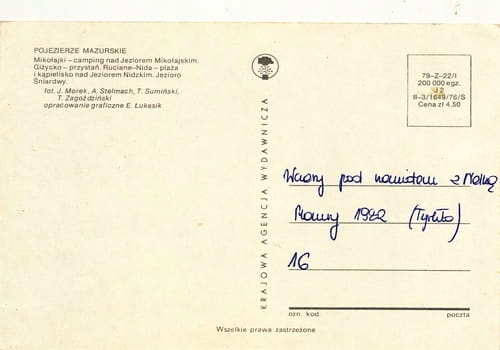 POJEZIERZE MAZURSKIE
Mikołajki – camping nad Jeziorem Mikołajskim.
Giżycko – przystań. Ruciane–Nida – plaża
i kąpielisko nad Jeziorem Nidzkim. Jezioro
Śniardwy.
fot. J. Morek, A. Stelmach, T. Sumiński,
T. Zagoździński
opracowanie graficzne E. Łukasik
KRAJOWA AGENCJA WYDAWNICZA
79–Z–22/I
200 000 egz.
J2
II–3/1649/76/S
Cena zł 4,50
pod namiotem z
Mazury 1982
16
ozn. kod.
poczta
Wszelkie prawa zastrzeżone